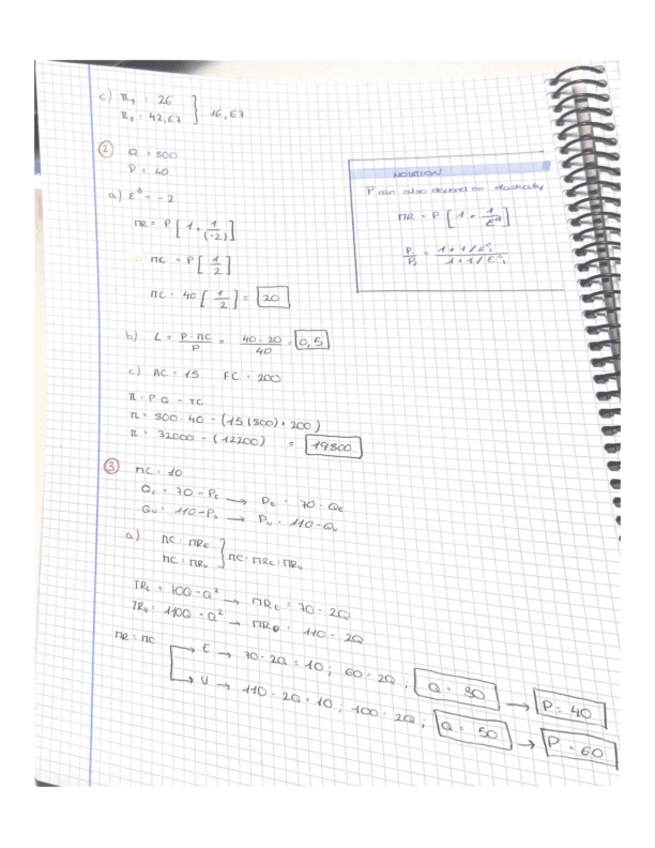 c) π₁ = 26
π₂ = 42,67 } 16,67
② Q = 800
P = 40
a) Eᵈ = -2
MR = P [1 + 1/(-2)]
MC = P [1/2]
MC = 40 [1/2] = 20
NOTATION
P can also depend on elasticity
MR = P [1 + 1/Eᵈ]
P₁/P₂ = 1 + 1/Eᵈ₂ / 1 + 1/Eᵈ₁
b) L = P - MC / P = 40 - 20 / 40 = 0,5
c) AC = 15 FC = 200
π = P·Q - TC
π = 800 · 40 - (15(800) + 200)
π = 32000 - (12200) = 19800
③ MC = 10
QE = 70 - PE → PE = 70 - QE
QU = 110 - PU → PU = 110 - QU
a) MC = MRE
MC = MRU } MC = MRE = MRU
TRE = 70Q - Q² → MRE = 70 - 2Q
TRU = 110Q - Q² → MRU = 110 - 2Q
MR = MC
E → 70 - 2Q = 10 ; 60 = 2Q ; Q = 30 → P = 40
U → 110 - 2Q = 10 ; 100 = 2Q ; Q = 50 → P = 60